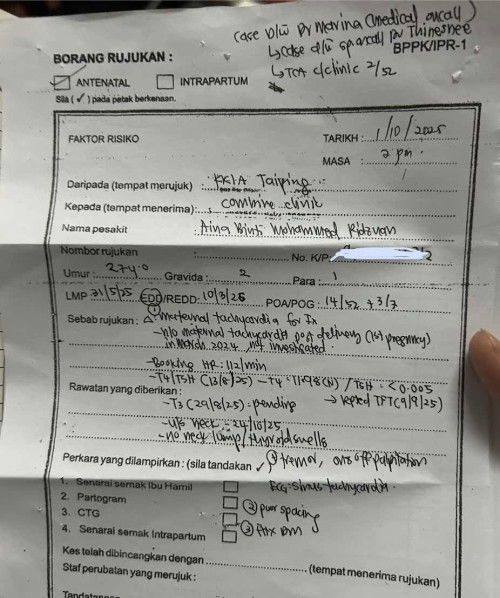 case d/w Dr Marina (medical oncall)
↳ case d/w sp oncall Dr Thinesnee
BORANG RUJUKAN :
BPPK/IPR-1
↳ TCA c/clinic 2/52
✓ ANTENATAL INTRAPARTUM
Sila ( ✓ ) pada petak berkenaan.
FAKTOR RISIKO
TARIKH : 1/10/2025
MASA : 2 pm.
Daripada (tempat merujuk) : KKIA Taiping
Kepada (tempat menerima) : combine clinic
Nama pesakit : Aina Binti Mohammed Ridzuan
Nombor rujukan No. K/P. 2
Umur : 27 y.o Gravida : 2 Para : 1
LMP 31/5/25 EDD/REDD: 10/3/26 POA/POG : 14/52 + 3/7
Sebab rujukan : ① maternal tachycardia for Ix
- h/o maternal tachycardia post delivery (1st pregnancy)
in March 2024, not investigated
- Booking HR: 112/min
- T4/TSH (13/8/25) - T4: (N) / TSH: <0.005
Rawatan yang diberikan :
- T3 (29/8/25): pending → repeat TFT (9/9/25)
- u/s neck: 24/10/25
- no neck lump/thyroid swells
Perkara yang dilampirkan : (sila tandakan ✓) tremor, on & off palpitation
1. Senarai semak Ibu Hamil ECG: sinus tachycardia.
2. Partogram ② poor spacing
3. CTG
4. Senarai semak Intrapartum ③ FHx DM
Kes telah dibincangkan dengan (tempat menerima rujukan)
Staf perubatan yang merujuk :
Tandatangan